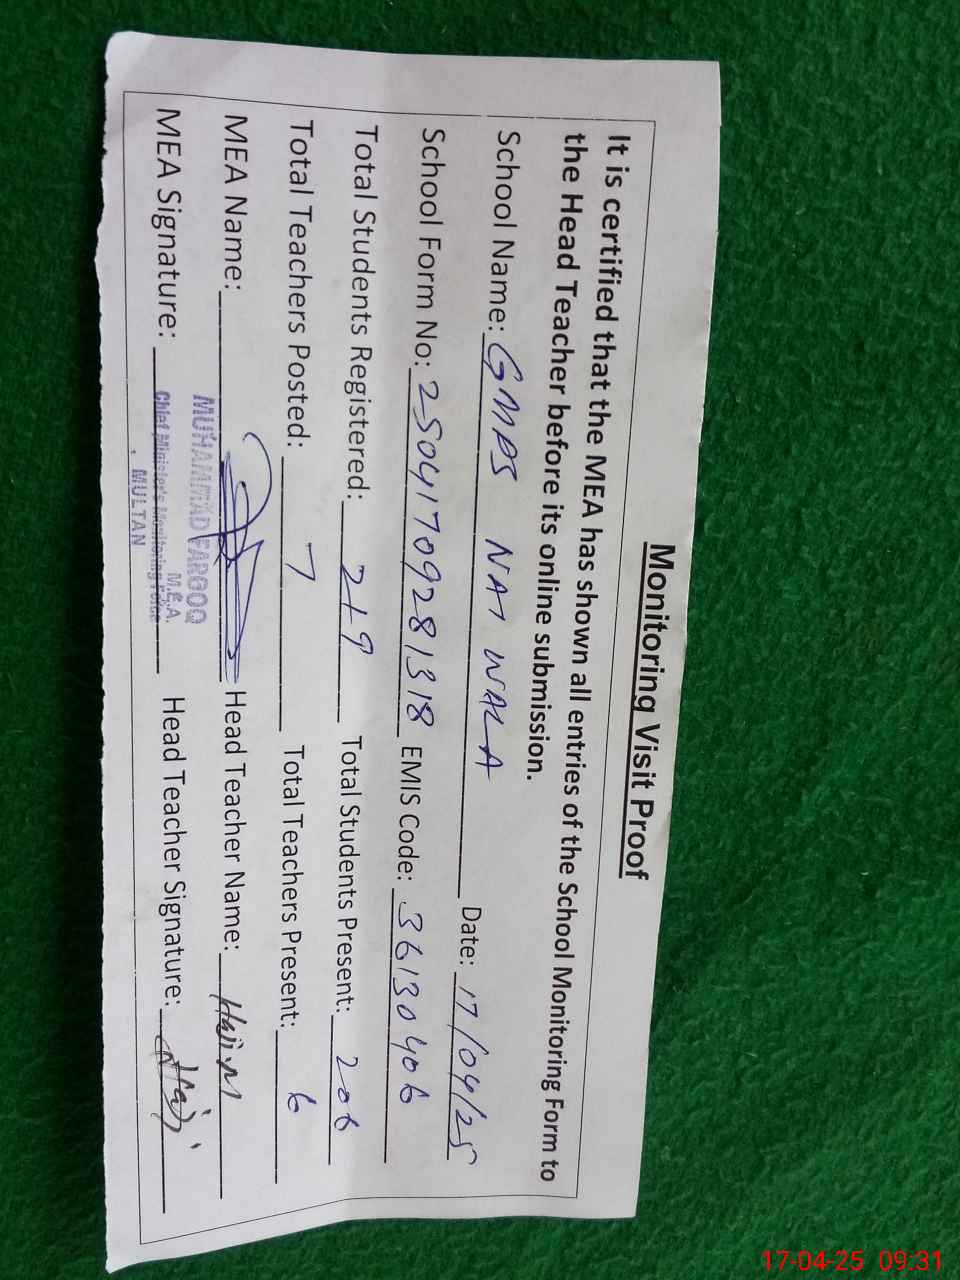 Monitoring Visit Proof
It is certified that the MEA has shown all entries of the School Monitoring Form to
the Head Teacher before its online submission.
School Name: GMPS NAI WALA Date: 17/04/25
School Form No: 25041709281318 EMIS Code: 36130406
Total Students Registered: 219 Total Students Present: 206
Total Teachers Posted: 7 Total Teachers Present: 6
MEA Name: Head Teacher Name:
MUHAMMAD FAROOQ
M.E.A.
MEA Signature: Head Teacher Signature:
Chief Minister's Monitoring Force
MULTAN
17-04-25 09:31